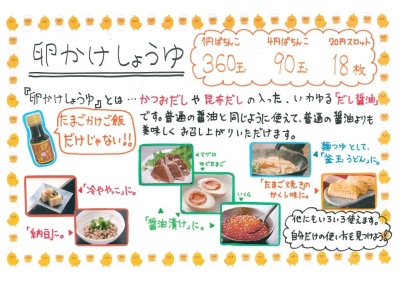 卵かけしょうゆ
1円ぱちんこ 4円ぱちんこ 20円スロット
360玉 90玉 18枚
『卵かけしょうゆ』とは…かつおだしや昆布だしの入った、いわゆる「だし醤油」
です。普通の醤油と同じように使えて、普通の醤油よりも
美味しくお召し上がりいただけます。
たまごかけご飯
だけじゃない!!
「冷ややっこ」に。
「納豆」に。
マグロ
ゆでたまご
いくら
「醤油漬け」に。
麺つゆとして、
「釜玉うどん」に。
「たまご焼きの
かくし味」に。
他にもいろいろ使えます。
自分だけの使い方を見つけよう!